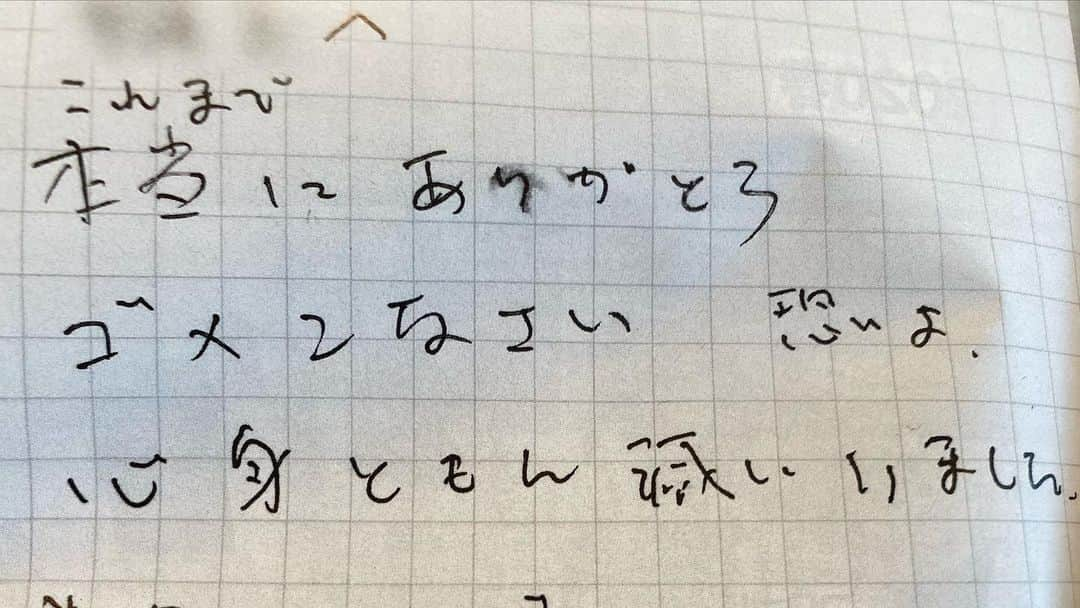 これまで
本当に ありがとう
ゴメンなさい 恐いよ.
心身とも ました.